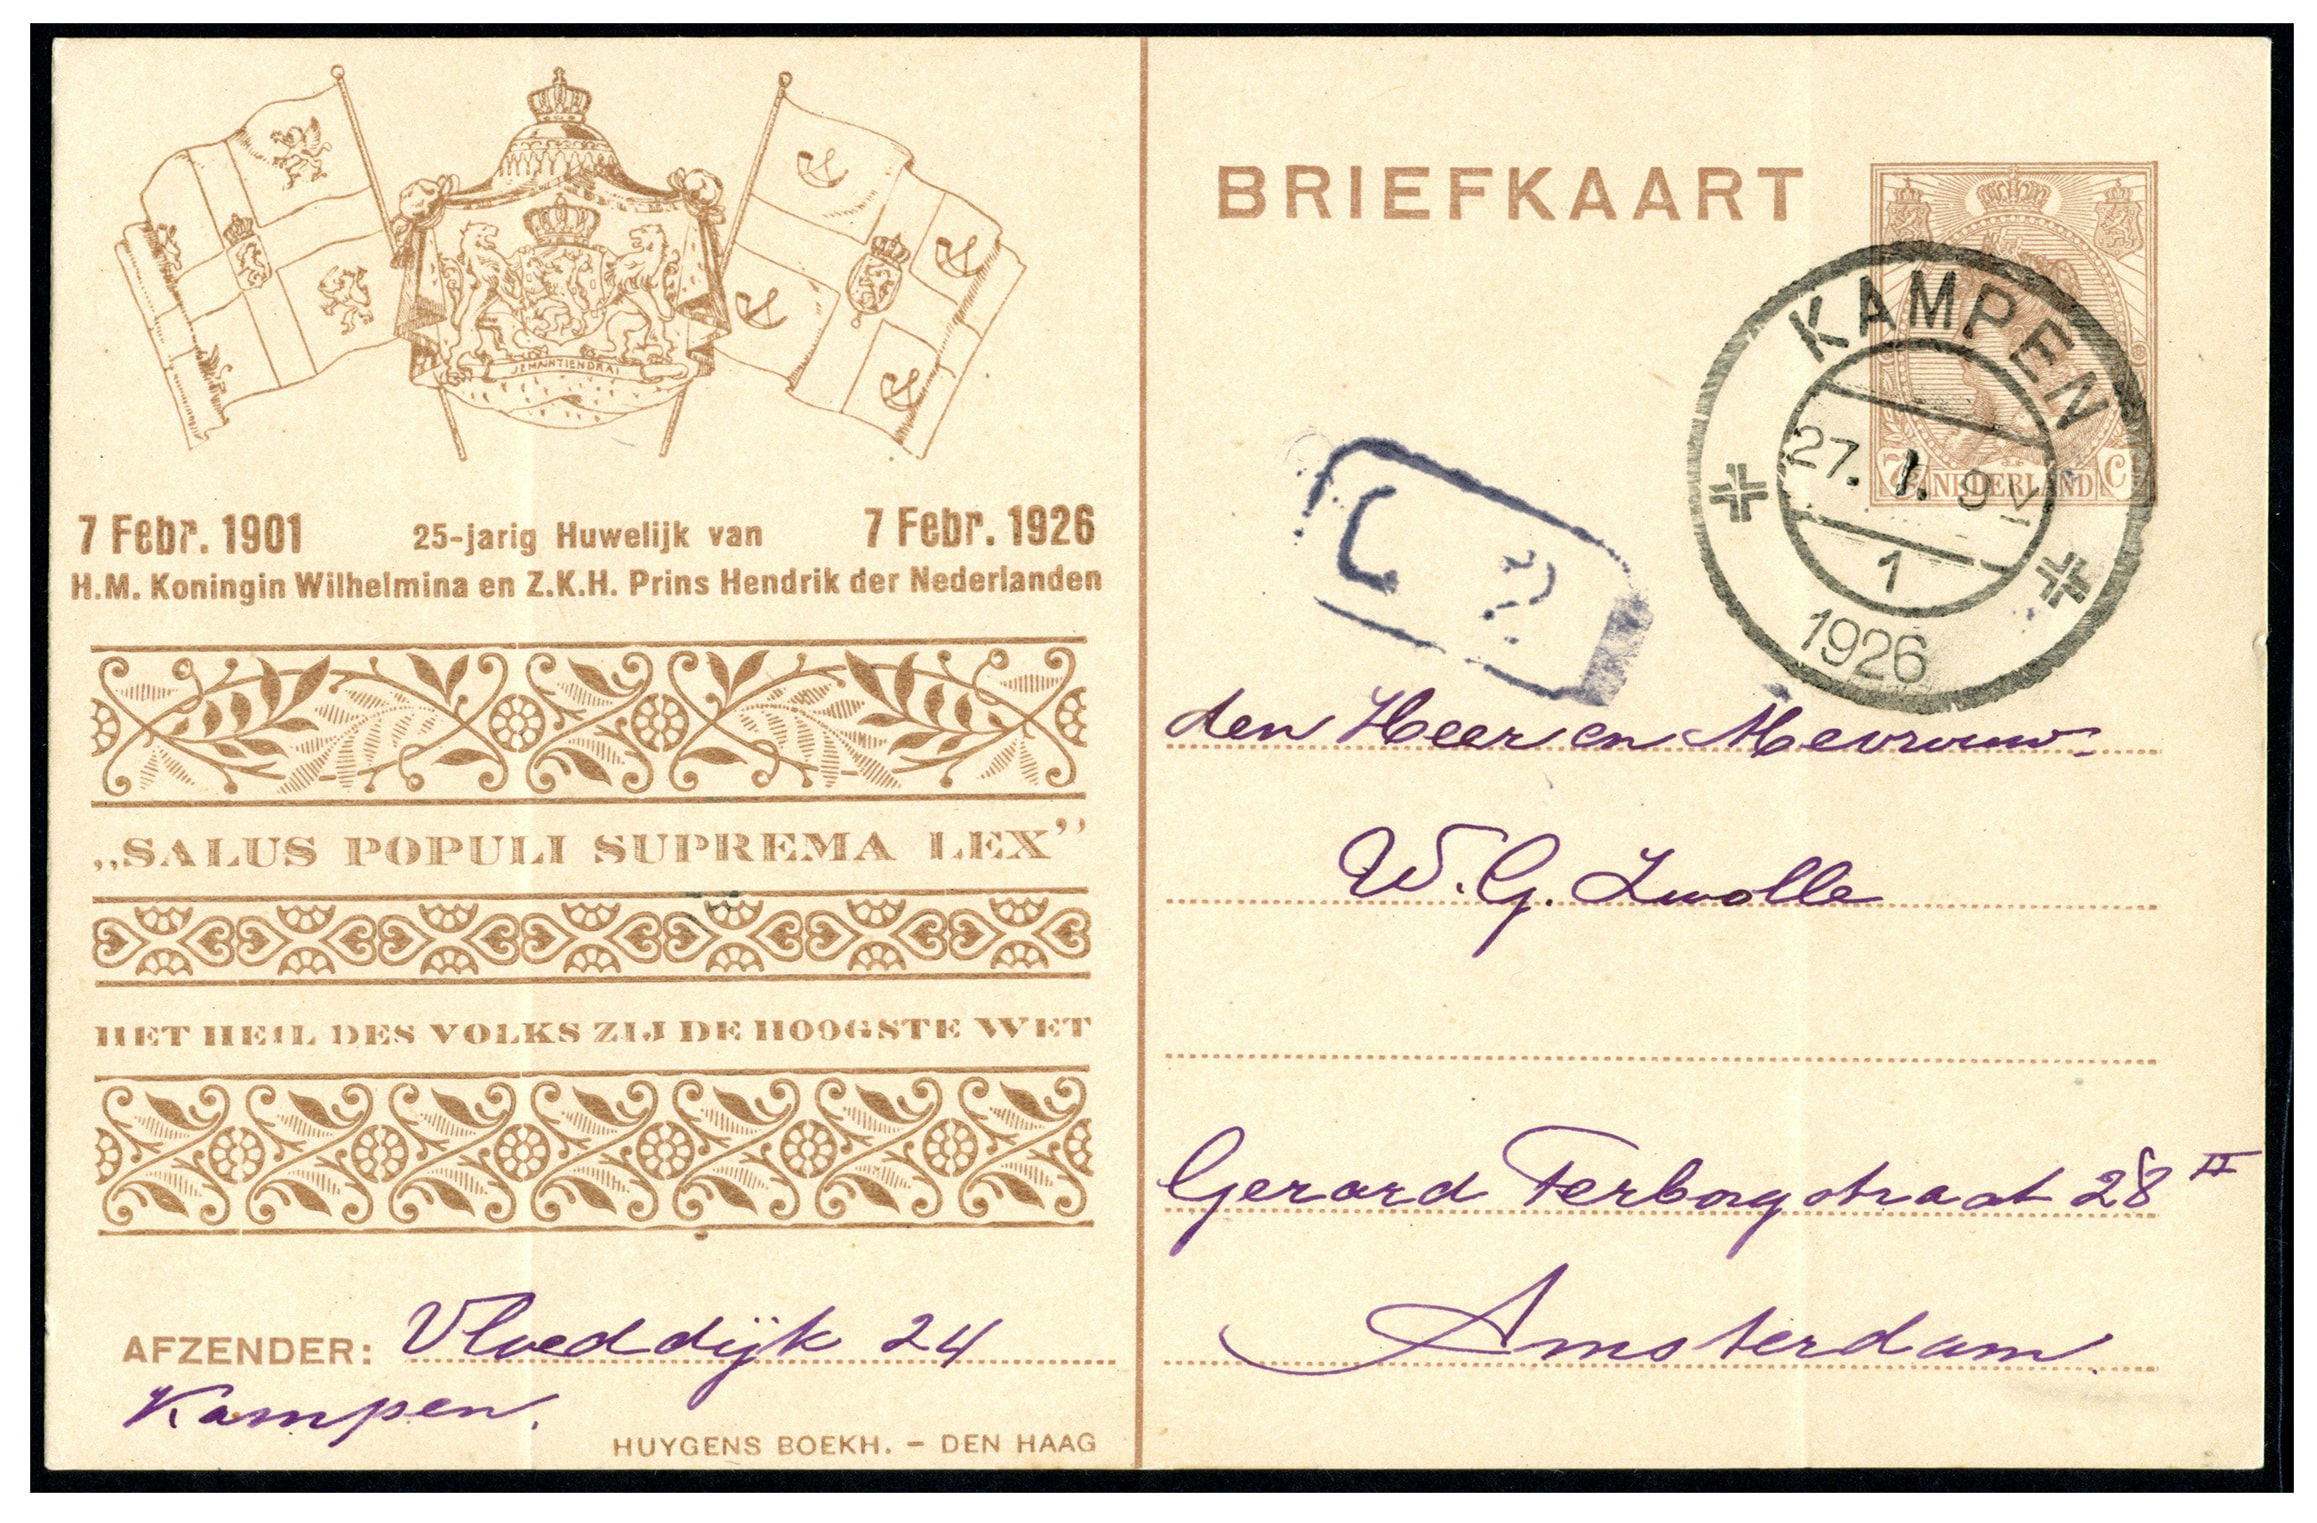 JE MAINTIENDRAI
7 Febr. 1901 25-jarig Huwelijk van 7 Febr. 1926
H.M. Koningin Wilhelmina en Z.K.H. Prins Hendrik der Nederlanden
„SALUS POPULI SUPREMA LEX”
HET HEIL DES VOLKS ZIJ DE HOOGSTE WET
AFZENDER: Vloeddijk 24
Kampen.
HUYGENS BOEKH. – DEN HAAG
BRIEFKAART
NEDERLAND
KAMPEN
27. 1. 9 V
1
1926
C 2
den Heer en Mevrouw
W. G. Zwolle
Gerard Terborgstraat 28 II
Amsterdam.